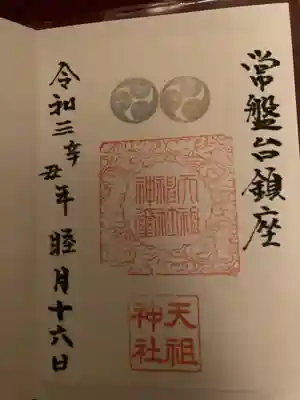 常盤台鎮座
天祖神社
令和三辛丑年 睦月十六日